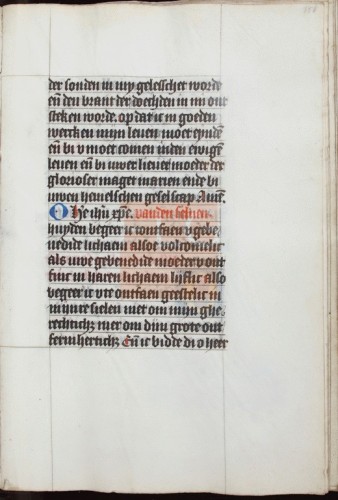 der sonden in mẏ gelesschet worde
eñ den brant der doechden in mi ont
steken worde. op dat ic in goeden
wercken mijn leuen moet eẏndē
eñ bi v moet comen inden ewigē
leuen eñ bi uwer lieuer moeder der
glorioser maget marien ende bi
uwen hemelschen geselscap Amē.
O Here ihū xp̄e. vanden
huyden begeer ic tontfaen v gebe
nedide lichaem alsoe volcomelic
als uwe gebenedide moeder v ont
finc in haren lichaem also
begeer ic v te ontfaen geestelic in
mijnre sielen niet om mijn ghe
rechticheẏt mer om dijn grote ont
fermherticheẏt Eñ ic bidde di o heer